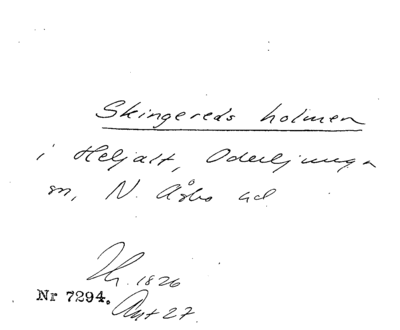 Skingereds holmen
i Heljalt, Oderljunga
sn, N. Åsbo hd
1826
Nr 7294. Ant 27.